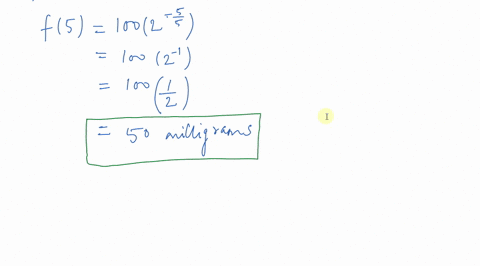 f(5) = 100(2^{-5/5})
= 100 (2^{-1})
= 100 (1/2)
= 50 milligrams